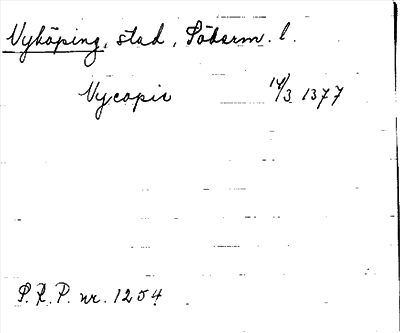 Nyköping, stad, Söderm. l.
Nycopie 14/3 1377
S.R.P. nr. 1254